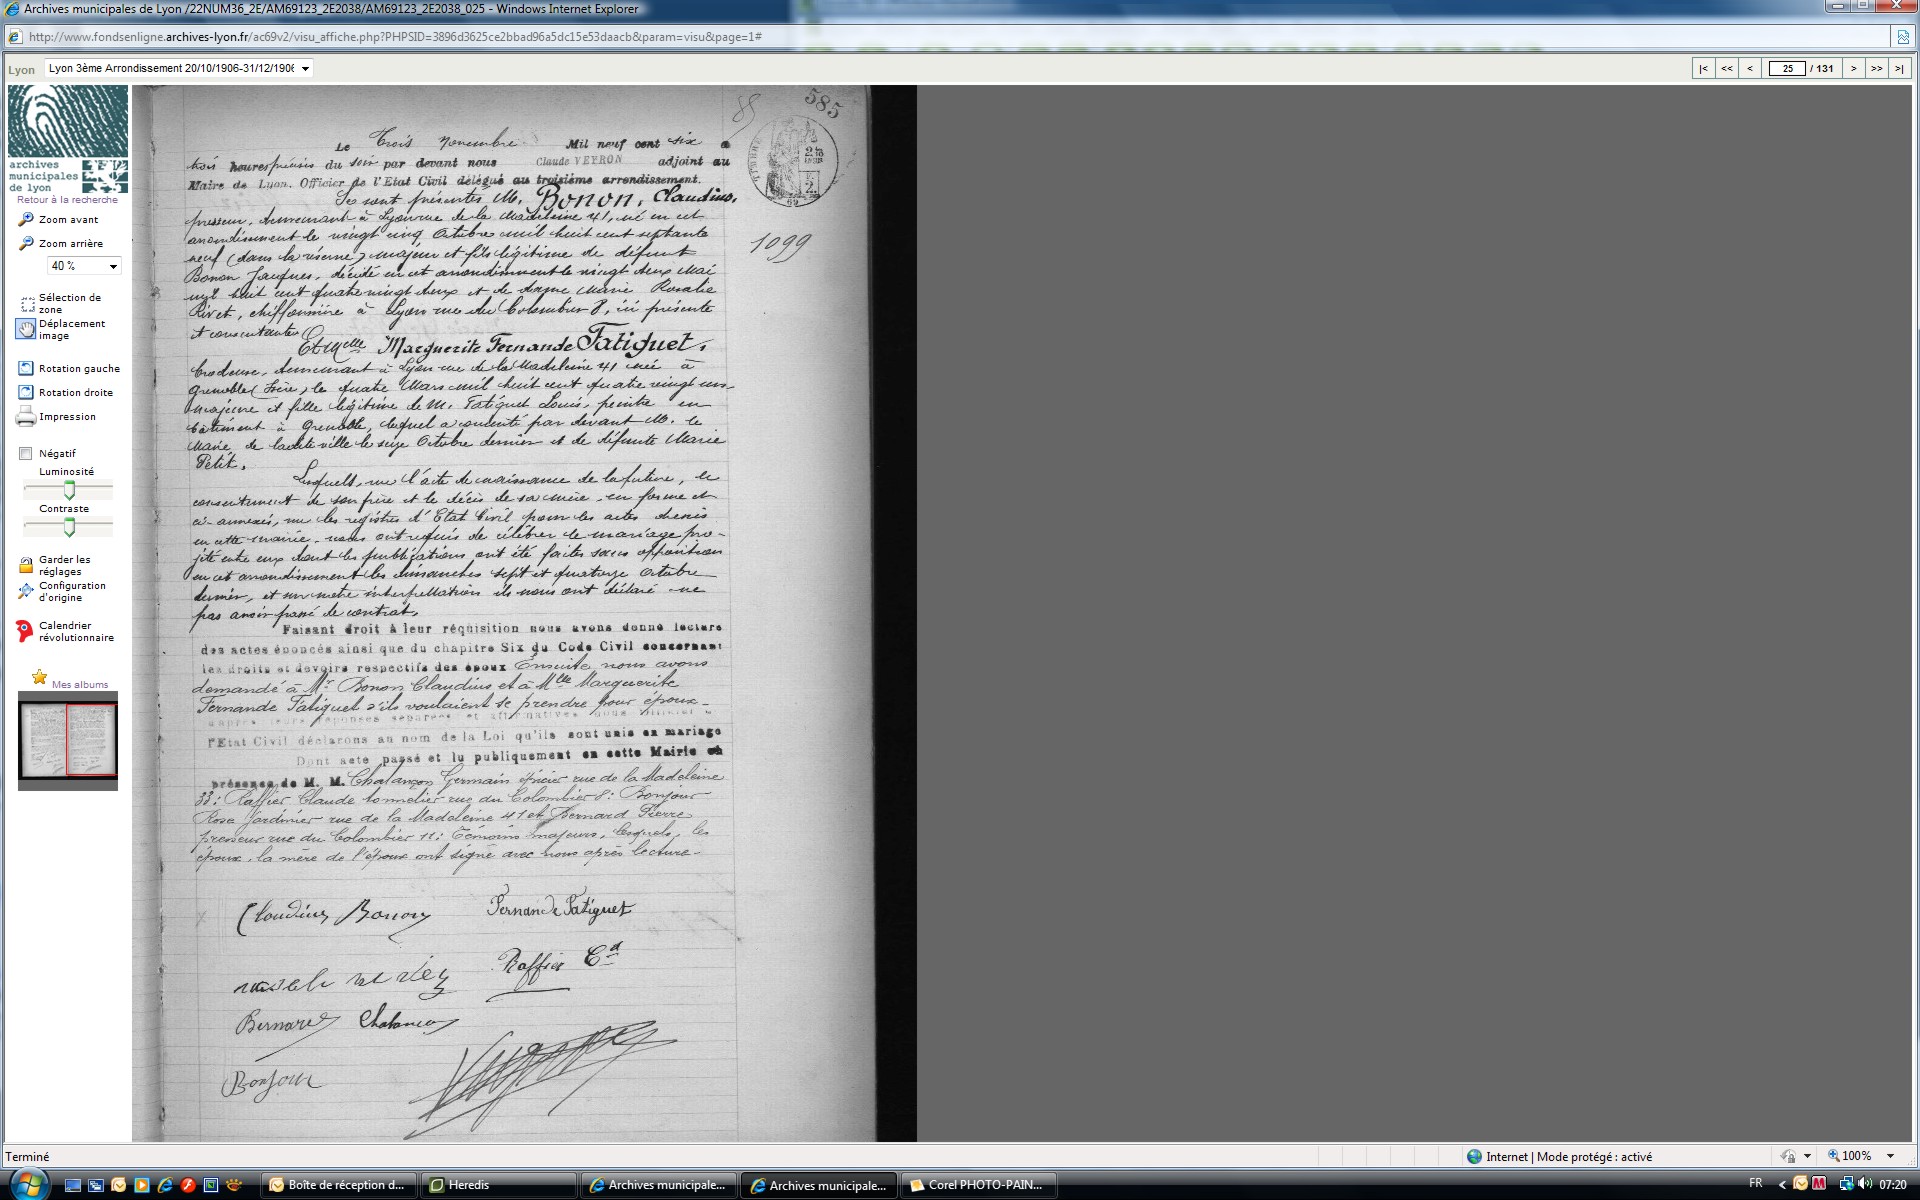 Archives municipales de Lyon /22NUM36_2E/AM69123_2E2038/AM69123_2E2038_025 - Windows Internet Explorer
http://www.fondsenligne.archives-lyon.fr/ac69v2/visu_affiche.php?PHPSID=3896d3625ce2bbad96a5dc15e53daacb&param=visu&page=1#
Lyon
Lyon 3ème Arrondissement 20/10/1906-31/12/1906
|< << < 25 / 131 > >> >|
archives
municipales
de lyon
Retour à la recherche
Zoom avant
Zoom arrière
40 %
Sélection de
zone
Déplacement
image
Rotation gauche
Rotation droite
Impression
Négatif
Luminosité
Contraste
Garder les
réglages
Configuration
d'origine
Calendrier
révolutionnaire
Mes albums
585
85
1099
Le Trois novembre Mil neuf cent six à
trois heures précises du soir par devant nous Claude VEYRON adjoint au
Maire de Lyon, Officier de l'Etat Civil délégué au troisième arrondissement.
Se sont présentés M. Bonon, Claudius,
presseur, demeurant à Lyon rue de la Madeleine 41, né en cet
arrondissement le vingt cinq Octobre mil huit cent septante
neuf (dans la réserve) majeur et fils légitime de défunt
Bonon Jacques, décédé en cet arrondissement le vingt deux Mai
mil huit cent quatre vingt deux et de dame Marie Rosalie
Rivet, chiffonnière à Lyon rue du Colombier 8, ici présente
et consentante
Et Melle Marguerite Fernande Fatiguet,
brodeuse, demeurant à Lyon rue de la Madeleine 41 née à
Grenoble (Isère) le quatre Mars mil huit cent quatre vingt un
majeure et fille légitime de M. Fatiguet Louis, peintre en
bâtiment à Grenoble, lequel a consenti par devant M. le
Maire de ladite ville le seize Octobre dernier et de défunte Marie
Petit.
Lesquels, vu l'acte de naissance de la future, le
consentement de son père et le décès de sa mère en forme et
ci-annexés, vu les registres d'Etat Civil pour les actes
en cette mairie, nous ont requis de célébrer le mariage pro-
jeté entre eux dont les publications ont été faites sans opposition
en cet arrondissement les dimanches sept et quatorze Octobre
dernier, et sur notre interpellation ils nous ont déclaré ne
pas avoir passé de contrat.
Faisant droit à leur réquisition nous avons donné lecture
des actes énoncés ainsi que du chapitre Six du Code Civil concernant
les droits et devoirs respectifs des époux Ensuite nous avons
demandé à Mr Bonon Claudius et à Mlle Marguerite
Fernande Fatiguet s'ils voulaient se prendre pour époux-
d'après leurs réponses séparées et affirmatives nous
l'Etat Civil déclarons au nom de la Loi qu'ils sont unis en mariage
Dont acte passé et lu publiquement en cette Mairie en
présence de M. M. Chalançon Germain épicier rue de la Madeleine
33: Raffier Claude tonnelier rue du Colombier 8: Bonjour
Rose jardinier rue de la Madeleine 41 et Bernard Pierre
presseur rue du Colombier 11: Témoins majeurs, lesquels, les
époux, la mère de l'époux ont signé avec nous après lecture-
Claudius Bonon Fernande Fatiguet
Raffier Cd
Bernard Chalancon
Bonjour
Terminé
Internet | Mode protégé : activé
100%
Boîte de réception d...
Heredis
Archives municipale...
Archives municipale...
Corel PHOTO-PAIN...
FR
07:20